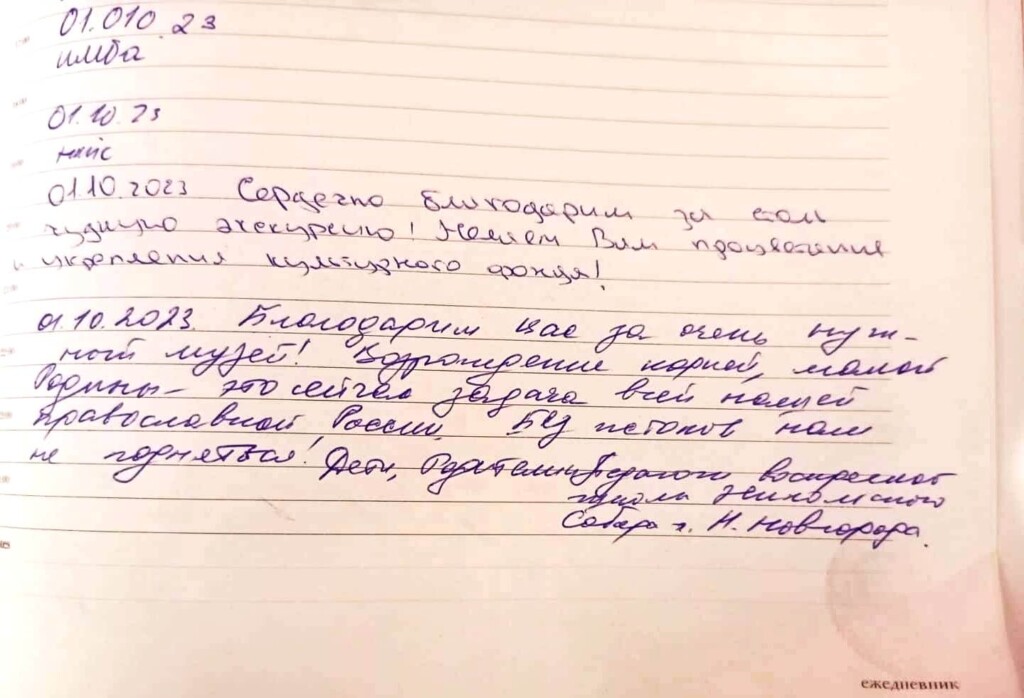 01.010.23
имба
01.10.23
найс
01.10.2023 Сердечно благодарим за столь
чудную экскурсию! Желаем Вам процветания
укрепления культурного фонда!
01.10.2023. Благодарим Вас за очень нуж-
ный музей! Возрождение корней, малой
Родины – это сейчас задача всей нашей
Православной России. Без истоков нам
не подняться! Дети, Родители, Педагоги воскресной
школы
Собора г. Н. Новгорода.
ежедневник